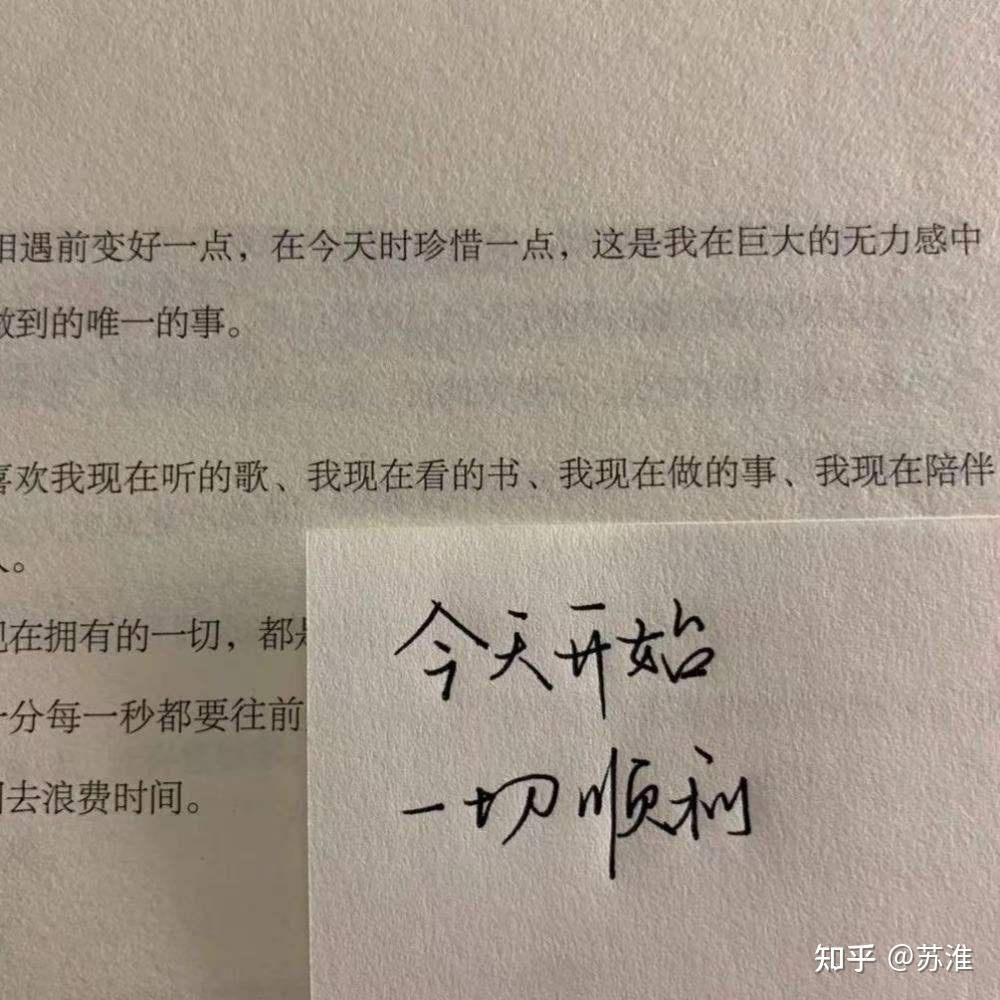 相遇前变好一点，在今天时珍惜一点，这是我在巨大的无力感中
做到的唯一的事。
喜欢我现在听的歌、我现在看的书、我现在做的事、我现在陪伴
人。
现在拥有的一切，都是
一分每一秒都要往前
去浪费时间。
今天开始
一切顺利
知乎 @苏淮